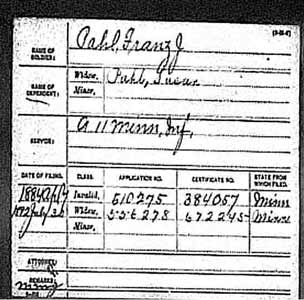 NAME OF SOLDIER: Pahl, Franz J
NAME OF DEPENDENT: Widow, Pahl, Susan
Minor,
SERVICE: G 11 Minn. Inf,
DATE OF FILING. CLASS. APPLICATION NO. CERTIFICATE NO. STATE FROM WHICH FILED.
1884 Invalid, 510275 384057 Minn
Widow, 556278 672245 Minn
Minor,
ATTORNEY:
REMARKS: